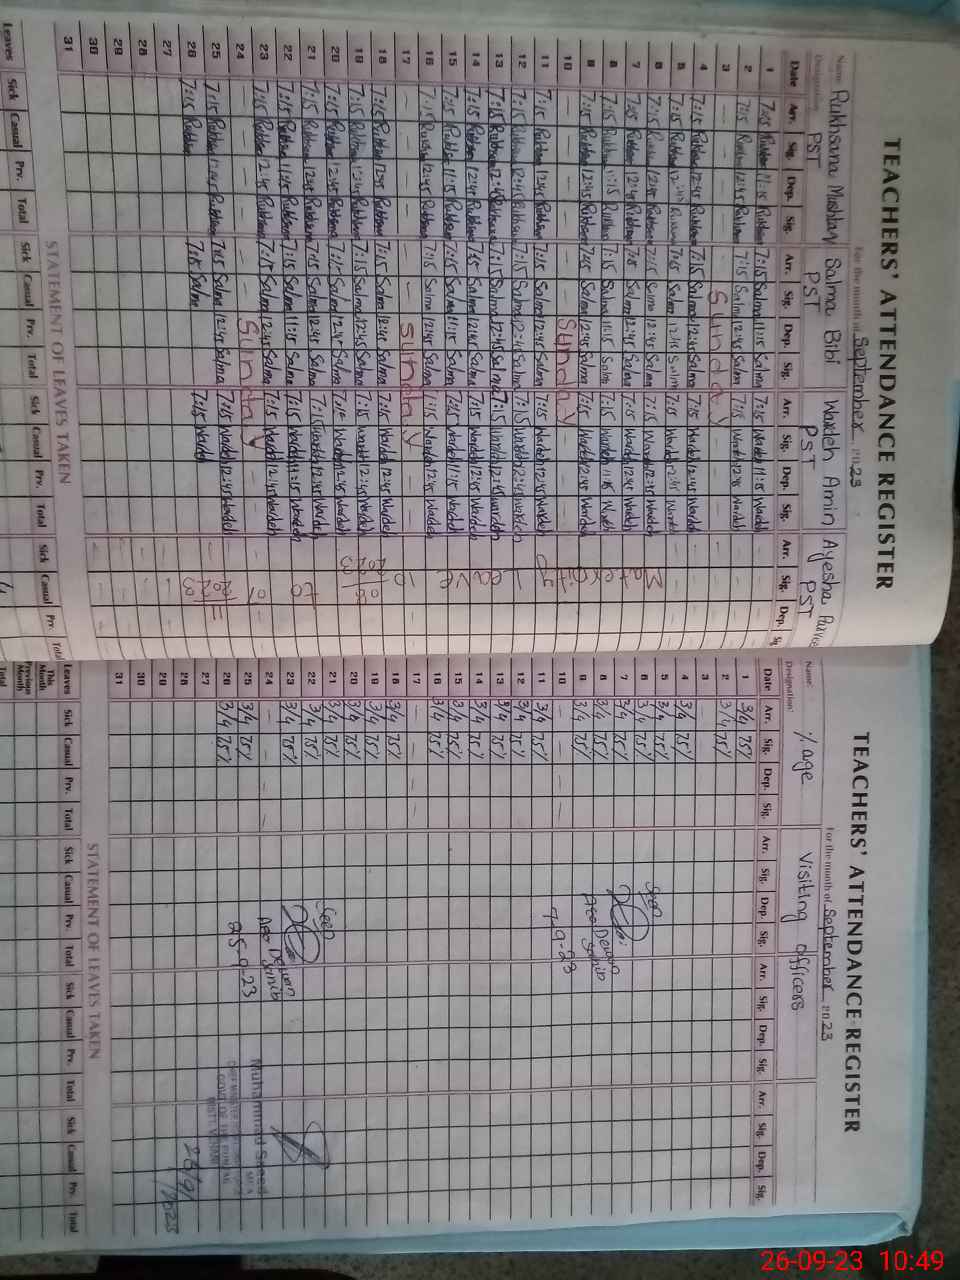 TEACHERS' ATTENDANCE REGISTER
For the month of September 2023
Name: Rukhsana Mushtaq Salma Bibi Wardeh Amin Ayesha Parvee
Designation: PST PST PST PST
Date Arr. Sig. Dep. Sig. Arr. Sig. Dep. Sig. Arr. Sig. Dep. Sig. Arr. Sig. Dep. Sig.
1 7:15 Rukhsan 11:15 Rukhsan 7:15 Salma 11:15 Salma 7:15 Wardeh 11:15 Wardeh
2 7:15 Rukhsan 12:45 Rukhsan 7:15 Salma 12:45 Salma 7:15 Wardeh 12:45 Wardeh
3 — Sunday
4 7:15 Rukhsan 12:45 Rukhsan 7:15 Salma 12:45 Salma 7:15 Wardeh 12:45 Wardeh
5 7:15 Rukhsan 12:45 Rukhsan 7:15 Salma 12:15 Salma 7:15 Wardeh 12:45 Wardeh
6 7:15 Rukhsan 12:45 Rukhsan 7:15 Salma 12:45 Salma 7:15 Wardeh 12:45 Wardeh
7 7:15 Rukhsan 12:45 Rukhsan 7:15 Salma 12:45 Salma 7:15 Wardeh 12:45 Wardeh
8 7:15 Rukhsan 11:15 Rukhsan 7:15 Salma 11:15 Salma 7:15 Wardeh 11:15 Wardeh
9 7:15 Rukhsan 12:45 Rukhsan 7:15 Salma 12:45 Salma 7:15 Wardeh 12:45 Wardeh
10 — Sunday
11 7:15 Rukhsan 12:45 Rukhsan 7:15 Salma 12:45 Salma 7:15 Wardeh 12:45 Wardeh
12 7:15 Rukhsan 12:45 Rukhsan 7:15 Salma 12:45 Salma 7:15 Wardeh 12:45 Wardeh
13 7:15 Rukhsan 12:45 Rukhsan 7:15 Salma 12:45 Salma 7:15 Wardeh 12:45 Wardeh
14 7:15 Rukhsan 12:45 Rukhsan 7:15 Salma 12:45 Salma 7:15 Wardeh 12:45 Wardeh
15 7:15 Rukhsan 11:15 Rukhsan 7:15 Salma 11:15 Salma 7:15 Wardeh 11:15 Wardeh
16 7:15 Rukhsan 12:45 Rukhsan 7:15 Salma 12:45 Salma 7:15 Wardeh 12:45 Wardeh
17 — Sunday
18 7:15 Rukhsan 12:45 Rukhsan 7:15 Salma 12:45 Salma 7:15 Wardeh 12:45 Wardeh
19 7:15 Rukhsan 12:45 Rukhsan 7:15 Salma 12:45 Salma 7:15 Wardeh 12:45 Wardeh
20 7:15 Rukhsan 12:45 Rukhsan 7:15 Salma 12:45 Salma 7:15 Wardeh 12:45 Wardeh
21 7:15 Rukhsan 12:45 Rukhsan 7:15 Salma 12:45 Salma 7:15 Wardeh 12:45 Wardeh
22 7:15 Rukhsan 11:45 Rukhsan 7:15 Salma 11:15 Salma 7:15 Wardeh 11:15 Wardeh
23 7:15 Rukhsan 12:45 Rukhsan 7:15 Salma 12:45 Salma 7:15 Wardeh 12:45 Wardeh
24 — Sunday
25 7:15 Rukhsan 12:45 Rukhsan 7:15 Salma 12:45 Salma 7:15 Wardeh 12:45 Wardeh
26 7:15 Rukhsan 7:15 Salma 7:15 Wardeh
27
28
29
30
31
Maternity Leave
to
2023
STATEMENT OF LEAVES TAKEN
Leaves Sick Casual Prv. Total Sick Casual Prv. Total Sick Casual Prv. Total Sick Casual Prv. Total
TEACHERS' ATTENDANCE REGISTER
For the month of September 2023
Name: %age Visiting officers
Designation:
Date Arr. Sig. Dep. Sig. Arr. Sig. Dep. Sig. Arr. Sig. Dep. Sig. Arr. Sig. Dep. Sig.
1 3/4 75%
2 3/4 75%
3 —
4 3/4 75%
5 3/4 75%
6 3/4 75%
7 3/4 75%
8 3/4 75%
9 3/4 75%
10 —
11 3/4 75%
12 3/4 75%
13 3/4 75%
14 3/4 75%
15 3/4 75%
16 3/4 75%
17 —
18 3/4 75%
19 3/4 75%
20 3/4 75%
21 3/4 75%
22 3/4 75%
23 3/4 75%
24 —
25 3/4 75%
26 3/4 75%
27
28
29
30
31
Seen
AEO Dewan Sahib
7-9-23
Seen
AEO Dewan Sahib
25-9-23
Muhammad Saeed
GOVT OF THE PUNJAB
26/9/2023
STATEMENT OF LEAVES TAKEN
Leaves Sick Casual Prv. Total Sick Casual Prv. Total Sick Casual Prv. Total Sick Casual Prv. Total
This Month
Previous Month
Total
26-09-23 10:49